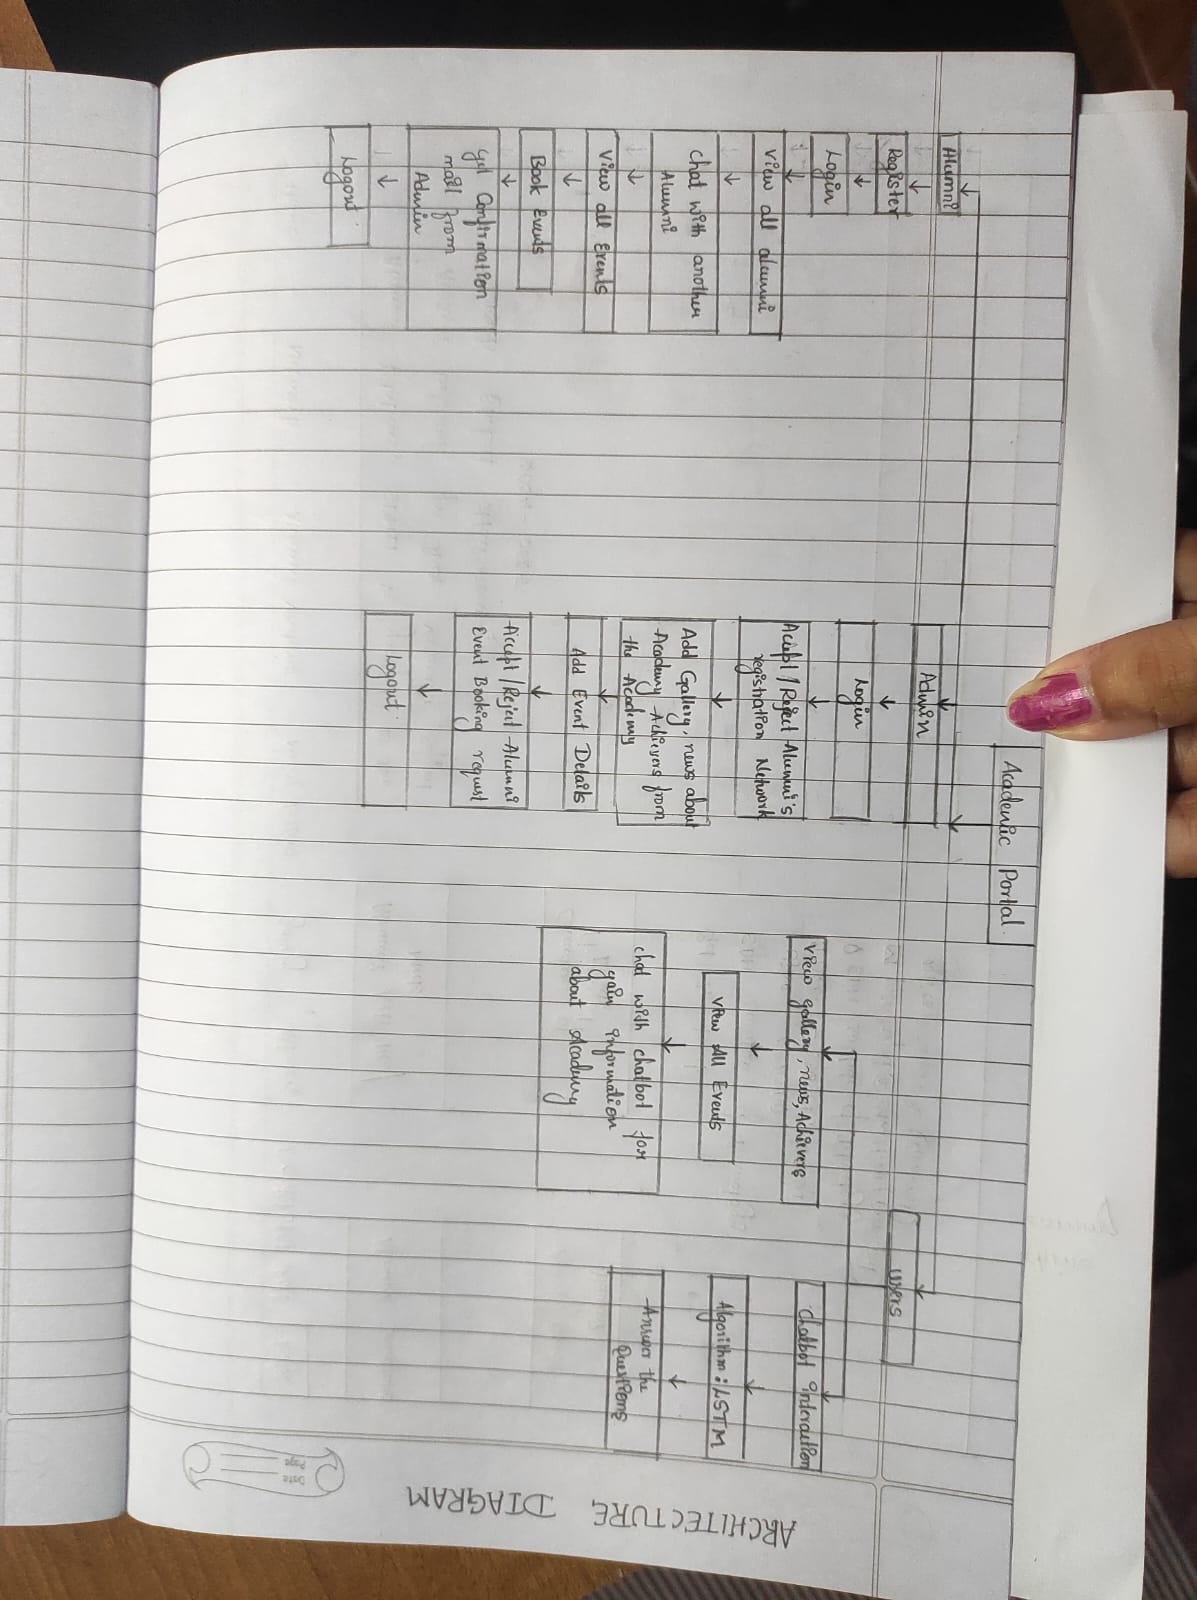 ARCHITECTURE DIAGRAM
Academic Portal.
Alumni
Register
Login
View all alumni
chat with another
Alumni
View all Events
Book Events
get Confirmation
mail from
Admin
Logout.
Admin
Login
Accept / Reject Alumni's
registration Network
Add Gallery, news about
Academy Achievers from
the Academy
Add Event Details
Accept / Reject Alumni
Event Booking request
Logout.
Users
View gallery, news, Achievers
View All Events
chat with chatbot for
gain information
about Academy
Chatbot interaction
Algorithm: LSTM
Answer the
Questions
Page
Date